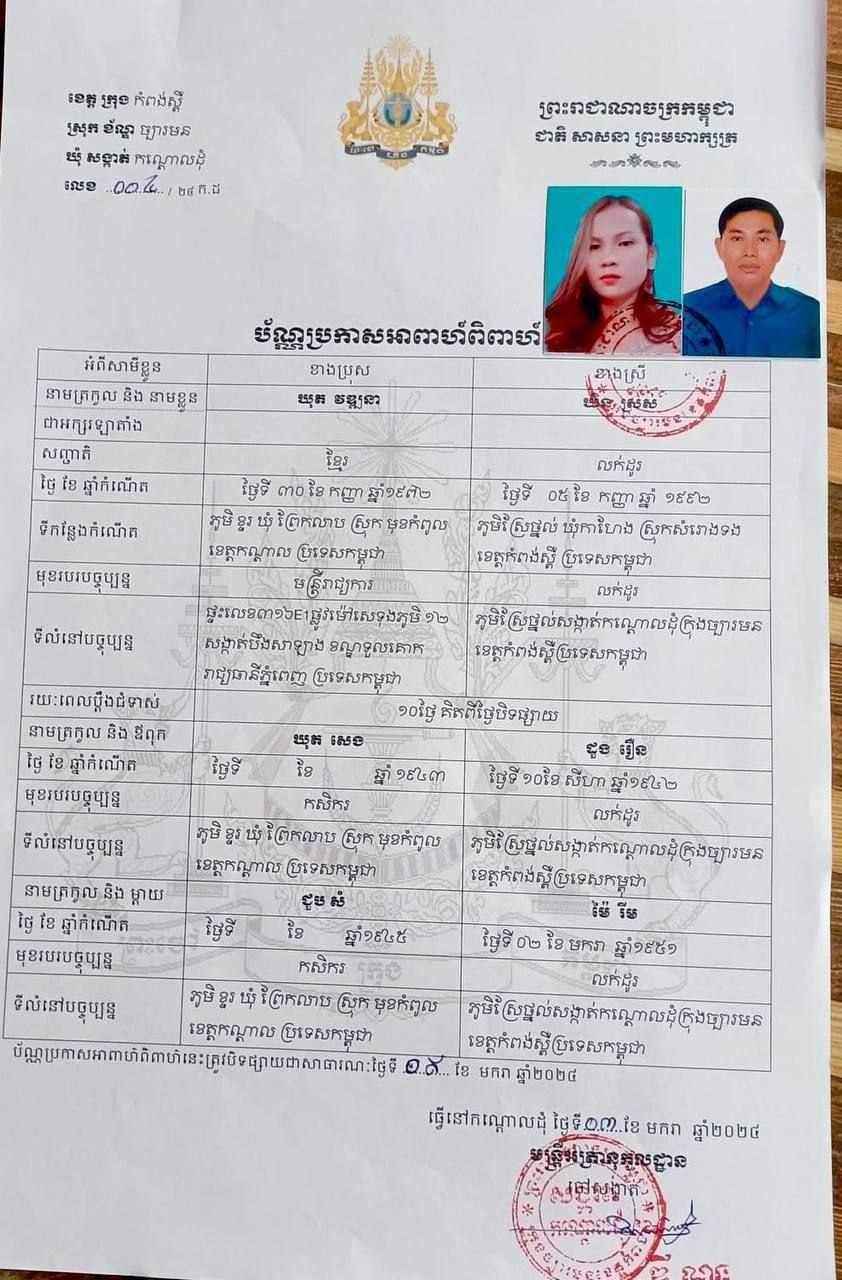 ខេត្ត ក្រុង កំពង់ស្ពឺ
ស្រុក ខ័ណ្ឌ ច្បារមន
ឃុំ សង្កាត់ កណ្តោលដុំ
លេខ ..០០៤.. / ២៤ ក.ដ
ព្រះរាជាណាចក្រកម្ពុជា
ជាតិ សាសនា ព្រះមហាក្សត្រ
ប័ណ្ណប្រកាសអាពាហ៍ពិពាហ៍
អំពីសាមីខ្លួន ខាងប្រុស ខាងស្រី
នាមត្រកូល និង នាមខ្លួន ឃុត វឌ្ឍនា ឃិន ស្រស់
ជាអក្សរឡាតាំង
សញ្ជាតិ ខ្មែរ លក់ដូរ
ថ្ងៃ ខែ ឆ្នាំកំណើត ថ្ងៃទី ៣០ ខែ កញ្ញា ឆ្នាំ១៩៧២ ថ្ងៃទី ០៥ ខែ កញ្ញា ឆ្នាំ ១៩៩២
ទីកន្លែងកំណើត ភូមិ ខ្ទរ ឃុំ ព្រែកលាប ស្រុក មុខកំពូល ភូមិស្រែថ្នល់ ឃុំកាហែង ស្រុកសំរោងទង
ខេត្តកណ្តាល ប្រទេសកម្ពុជា ខេត្តកំពង់ស្ពឺ ប្រទេសកម្ពុជា
មុខរបរបច្ចុប្បន្ន មន្ត្រីរាជ្យការ លក់ដូរ
ទីលំនៅបច្ចុប្បន្ន ផ្ទះលេខ៣១៦E1ផ្លូវម៉ៅសេទុងភូមិ ១២ ភូមិស្រែថ្នល់សង្កាត់កណ្តោលដុំក្រុងច្បារមន
សង្កាត់បឹងសាឡាង ខណ្ឌទួលគោក ខេត្តកំពង់ស្ពឺប្រទេសកម្ពុជា
រាជ្យធានីភ្នំពេញ ប្រទេសកម្ពុជា
រយៈពេលប្តឹងជំទាស់ ១០ថ្ងៃ គិតពីថ្ងៃបិទផ្សាយ
នាមត្រកូល និង ឪពុក ឃុត សេង ដូង រឿន
ថ្ងៃ ខែ ឆ្នាំកំណើត ថ្ងៃទី ខែ ឆ្នាំ ១៩៤៣ ថ្ងៃទី ១០ខែ សីហា ឆ្នាំ១៩៤២
មុខរបរបច្ចុប្បន្ន កសិករ លក់ដូរ
ទីលំនៅបច្ចុប្បន្ន ភូមិ ខ្ទរ ឃុំ ព្រែកលាប ស្រុក មុខកំពូល ភូមិស្រែថ្នល់សង្កាត់កណ្តោលដុំក្រុងច្បារមន
ខេត្តកណ្តាល ប្រទេសកម្ពុជា ខេត្តកំពង់ស្ពឺប្រទេសកម្ពុជា
នាមត្រកូល និង ម្តាយ ជួប សំ ម៉ៃ រីម
ថ្ងៃ ខែ ឆ្នាំកំណើត ថ្ងៃទី ខែ ឆ្នាំ១៩៤៥ ថ្ងៃទី ០២ ខែ មករា ឆ្នាំ១៩៥១
មុខរបរបច្ចុប្បន្ន កសិករ លក់ដូរ
ទីលំនៅបច្ចុប្បន្ន ភូមិ ខ្ទរ ឃុំ ព្រែកលាប ស្រុក មុខកំពូល ភូមិស្រែថ្នល់សង្កាត់កណ្តោលដុំក្រុងច្បារមន
ខេត្តកណ្តាល ប្រទេសកម្ពុជា ខេត្តកំពង់ស្ពឺប្រទេសកម្ពុជា
ប័ណ្ណប្រកាសអាពាហ៍ពិពាហ៍នេះត្រូវបិទផ្សាយជាសាធារណៈថ្ងៃទី ខែ មករា ឆ្នាំ២០២៤
ធ្វើនៅកណ្តោលដុំ ថ្ងៃទី.១៣..ខែ មករា ឆ្នាំ២០២៤
មន្ត្រីអត្រានុកូលដ្ឋាន
ចៅសង្កាត់